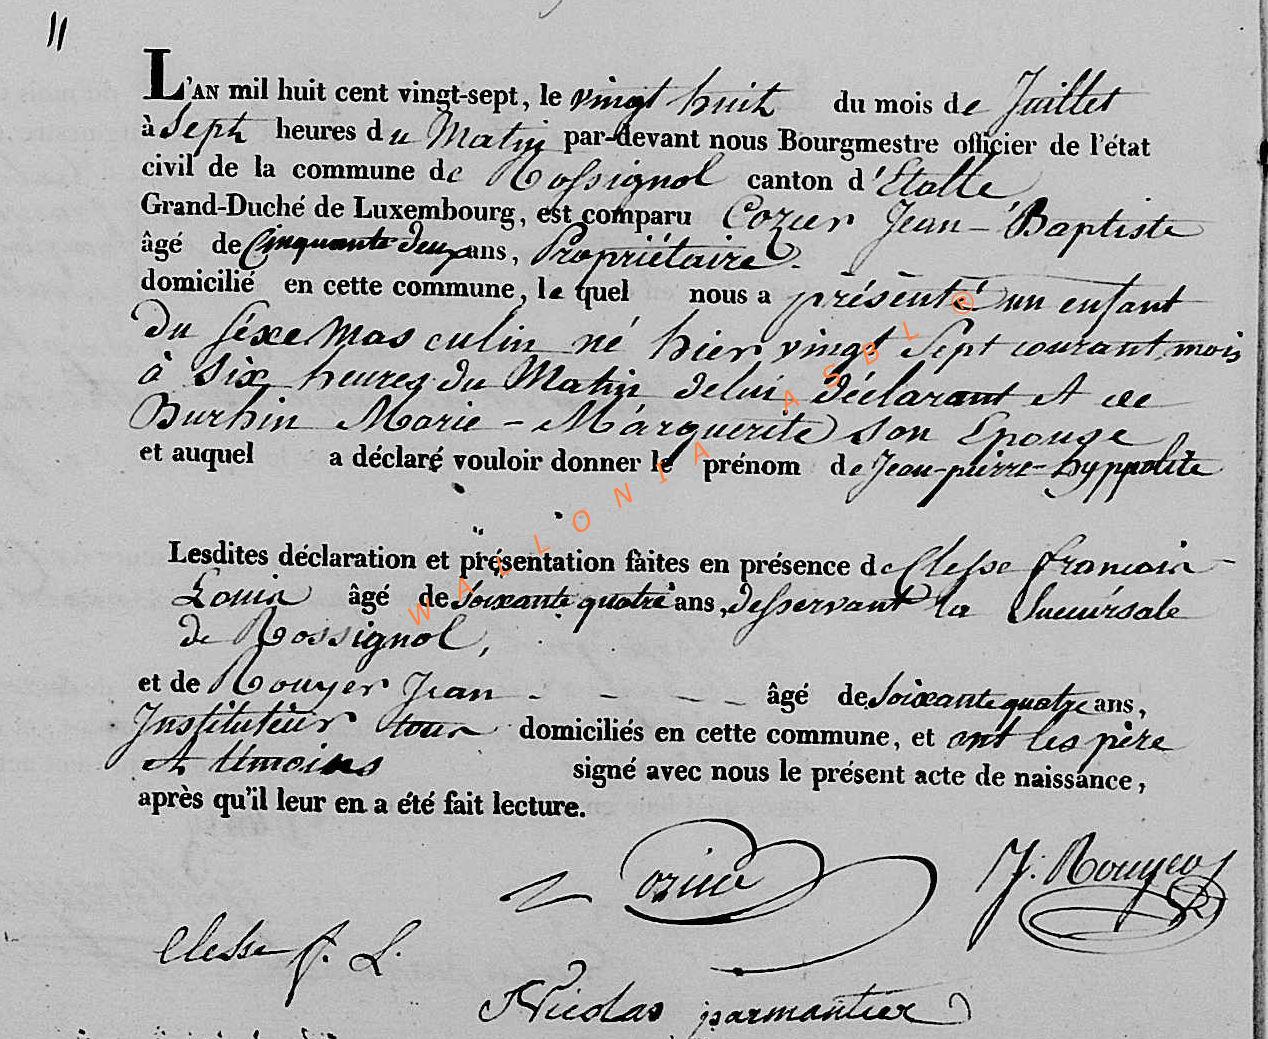 11
L'AN mil huit cent vingt-sept, le vingt huit du mois de Juillet
à Sept heures du Matin par-devant nous Bourgmestre officier de l'état
civil de la commune de Rossignol canton d'Etalle
Grand-Duché de Luxembourg, est comparu Cozier Jean-Baptiste
âgé de Cinquante deux ans, Propriétaire
domicilié en cette commune, le quel nous a présenté un enfant
Du séxe Masculin né hier vingt Sept courant mois
à Six heures du Matin de lui déclarant et de
Burhin Marie-Marguerite son Epouse
et auquel a déclaré vouloir donner le prénom de Jean-pierre-hyppolite
Lesdites déclaration et présentation faites en présence de Clesse francois
Louis âgé de Soixante quatre ans, desservant la Succursale
de Rossignol,
et de Rouyer Jean - - - - âgé de Soixante quatre ans,
Instituteur tous domiciliés en cette commune, et ont les père
et témoins signé avec nous le présent acte de naissance,
après qu'il leur en a été fait lecture.
J. Rouyer
Clesse f. L.
Nicolas parmantier
WALLONIA ASBL ®